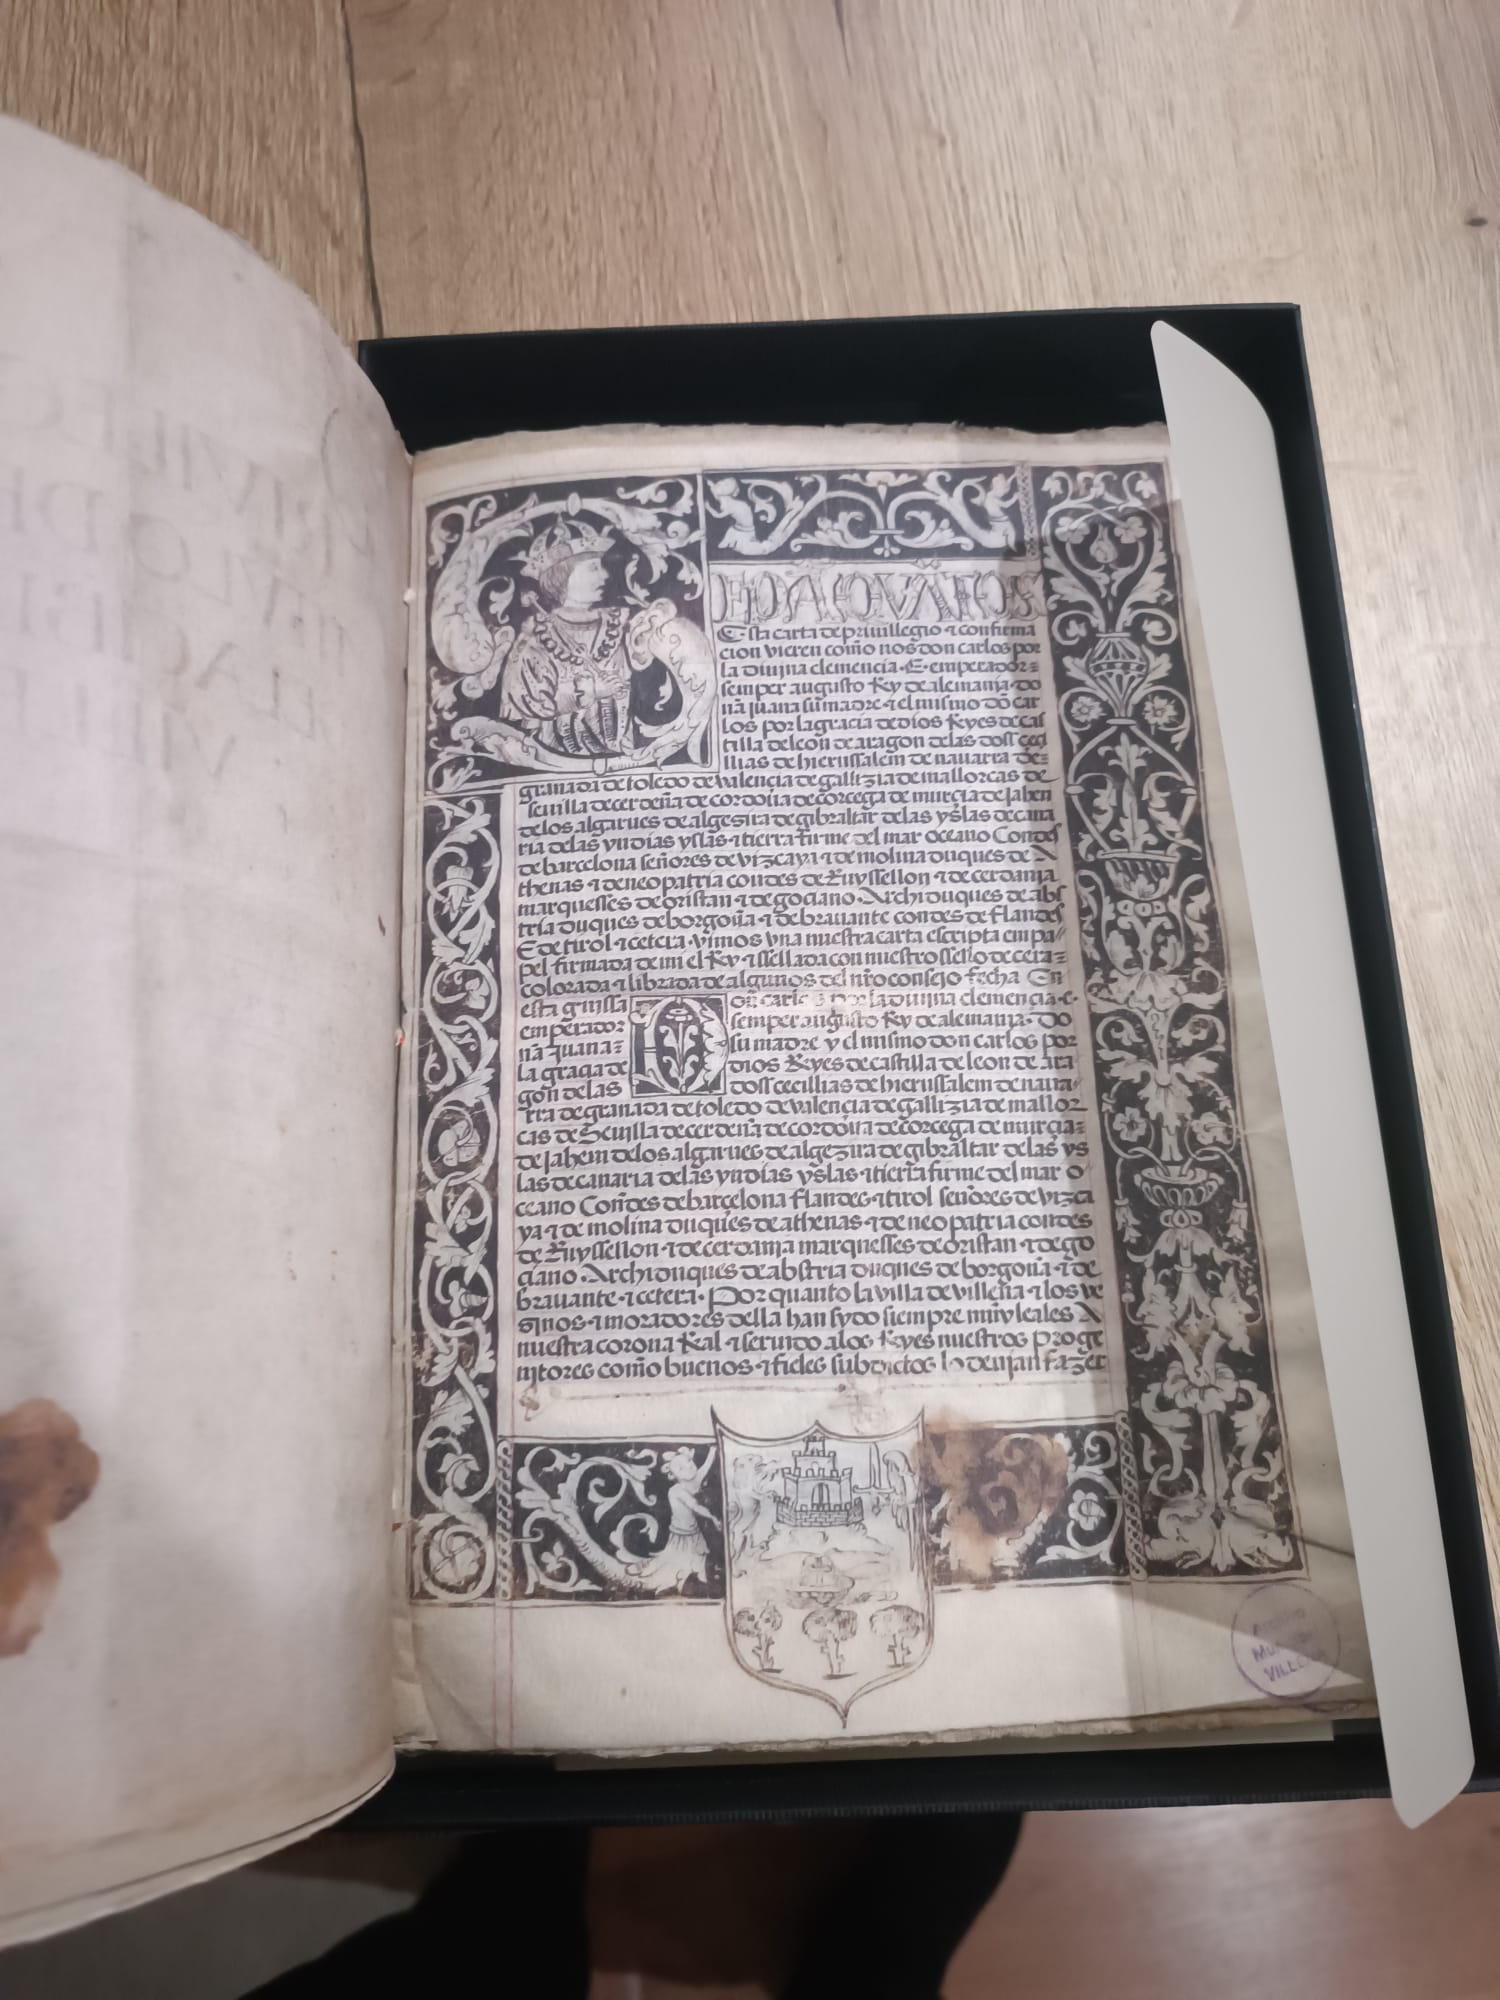 Esta carta de preuillegio ⁊ confirma
cion vieren como nos don carlos por
la diuina clemencia · E · emperador=
semper augusto Rey de alemania · do
ña juana su madre ⁊ el mismo dõ car
los por la gracia de dios Reyes de cas
tilla de leon de aragon de las doss ceci
llias de hierussalem de nauarra de=
granada de toledo de valençia de gallizia de mallorcas de
seuilla de cerdeña de cordoua de corcega de murcia de Jahen
de los algarues de algezira de gibraltar de las yslas de cana
ria de las yndias yslas ⁊ tierra firme del mar oceano Condes
de barcelona señores de vizcaya ⁊ de molina duques de A
thenas ⁊ de neopatria condes de Ruyssellon ⁊ de cerdania
marquesses de oristan ⁊ de gociano · Archiduques de abs
tria duques de borgoña ⁊ de brauante condes de flandes
E de tirol ⁊ cetera · vimos vna nuestra carta escripta em pa
pel firmada de mi el Rey ⁊ ssellada con nuestro ssello de cera=
colorada ⁊ librada de algunos del nr̃o consejo fecha En
esta guissa Don carlos por la diuina clemencia · e ·
emperador semper augusto Rey de alemania · Do
ña Juana= su madre y el mismo don carlos por
la graçia de dios Reyes de castilla de leon de ara
gon de las doss cecillias de hierussalem de naua
rra de granada de toledo de valencia de gallizia de mallor
cas de Seuilla de cerdeña de cordoua de corcega de murçia=
de Jahem de los algarues de algezira de gibraltar de las ys
las de canaria de las yndias yslas ⁊ tierra firme del mar o
ceano Condes de barçelona flandes ⁊ tirol señores de vizca
ya ⁊ de molina duques de athenas ⁊ de neopatria condes
de Ruyssellon ⁊ de cerdania marquesses de oristan ⁊ de go
ciano · Archiduques de abstria duques de borgoña ⁊ de
brauante ⁊ cetera · Por quanto la villa de villena ⁊ los ve
zinos ⁊ moradores della han sydo siempre muy leales A
nuestra corona Real ⁊ seruido a los Reyes nuestros proge
nitores como buenos ⁊ fieles subdictos lo deuian fazer